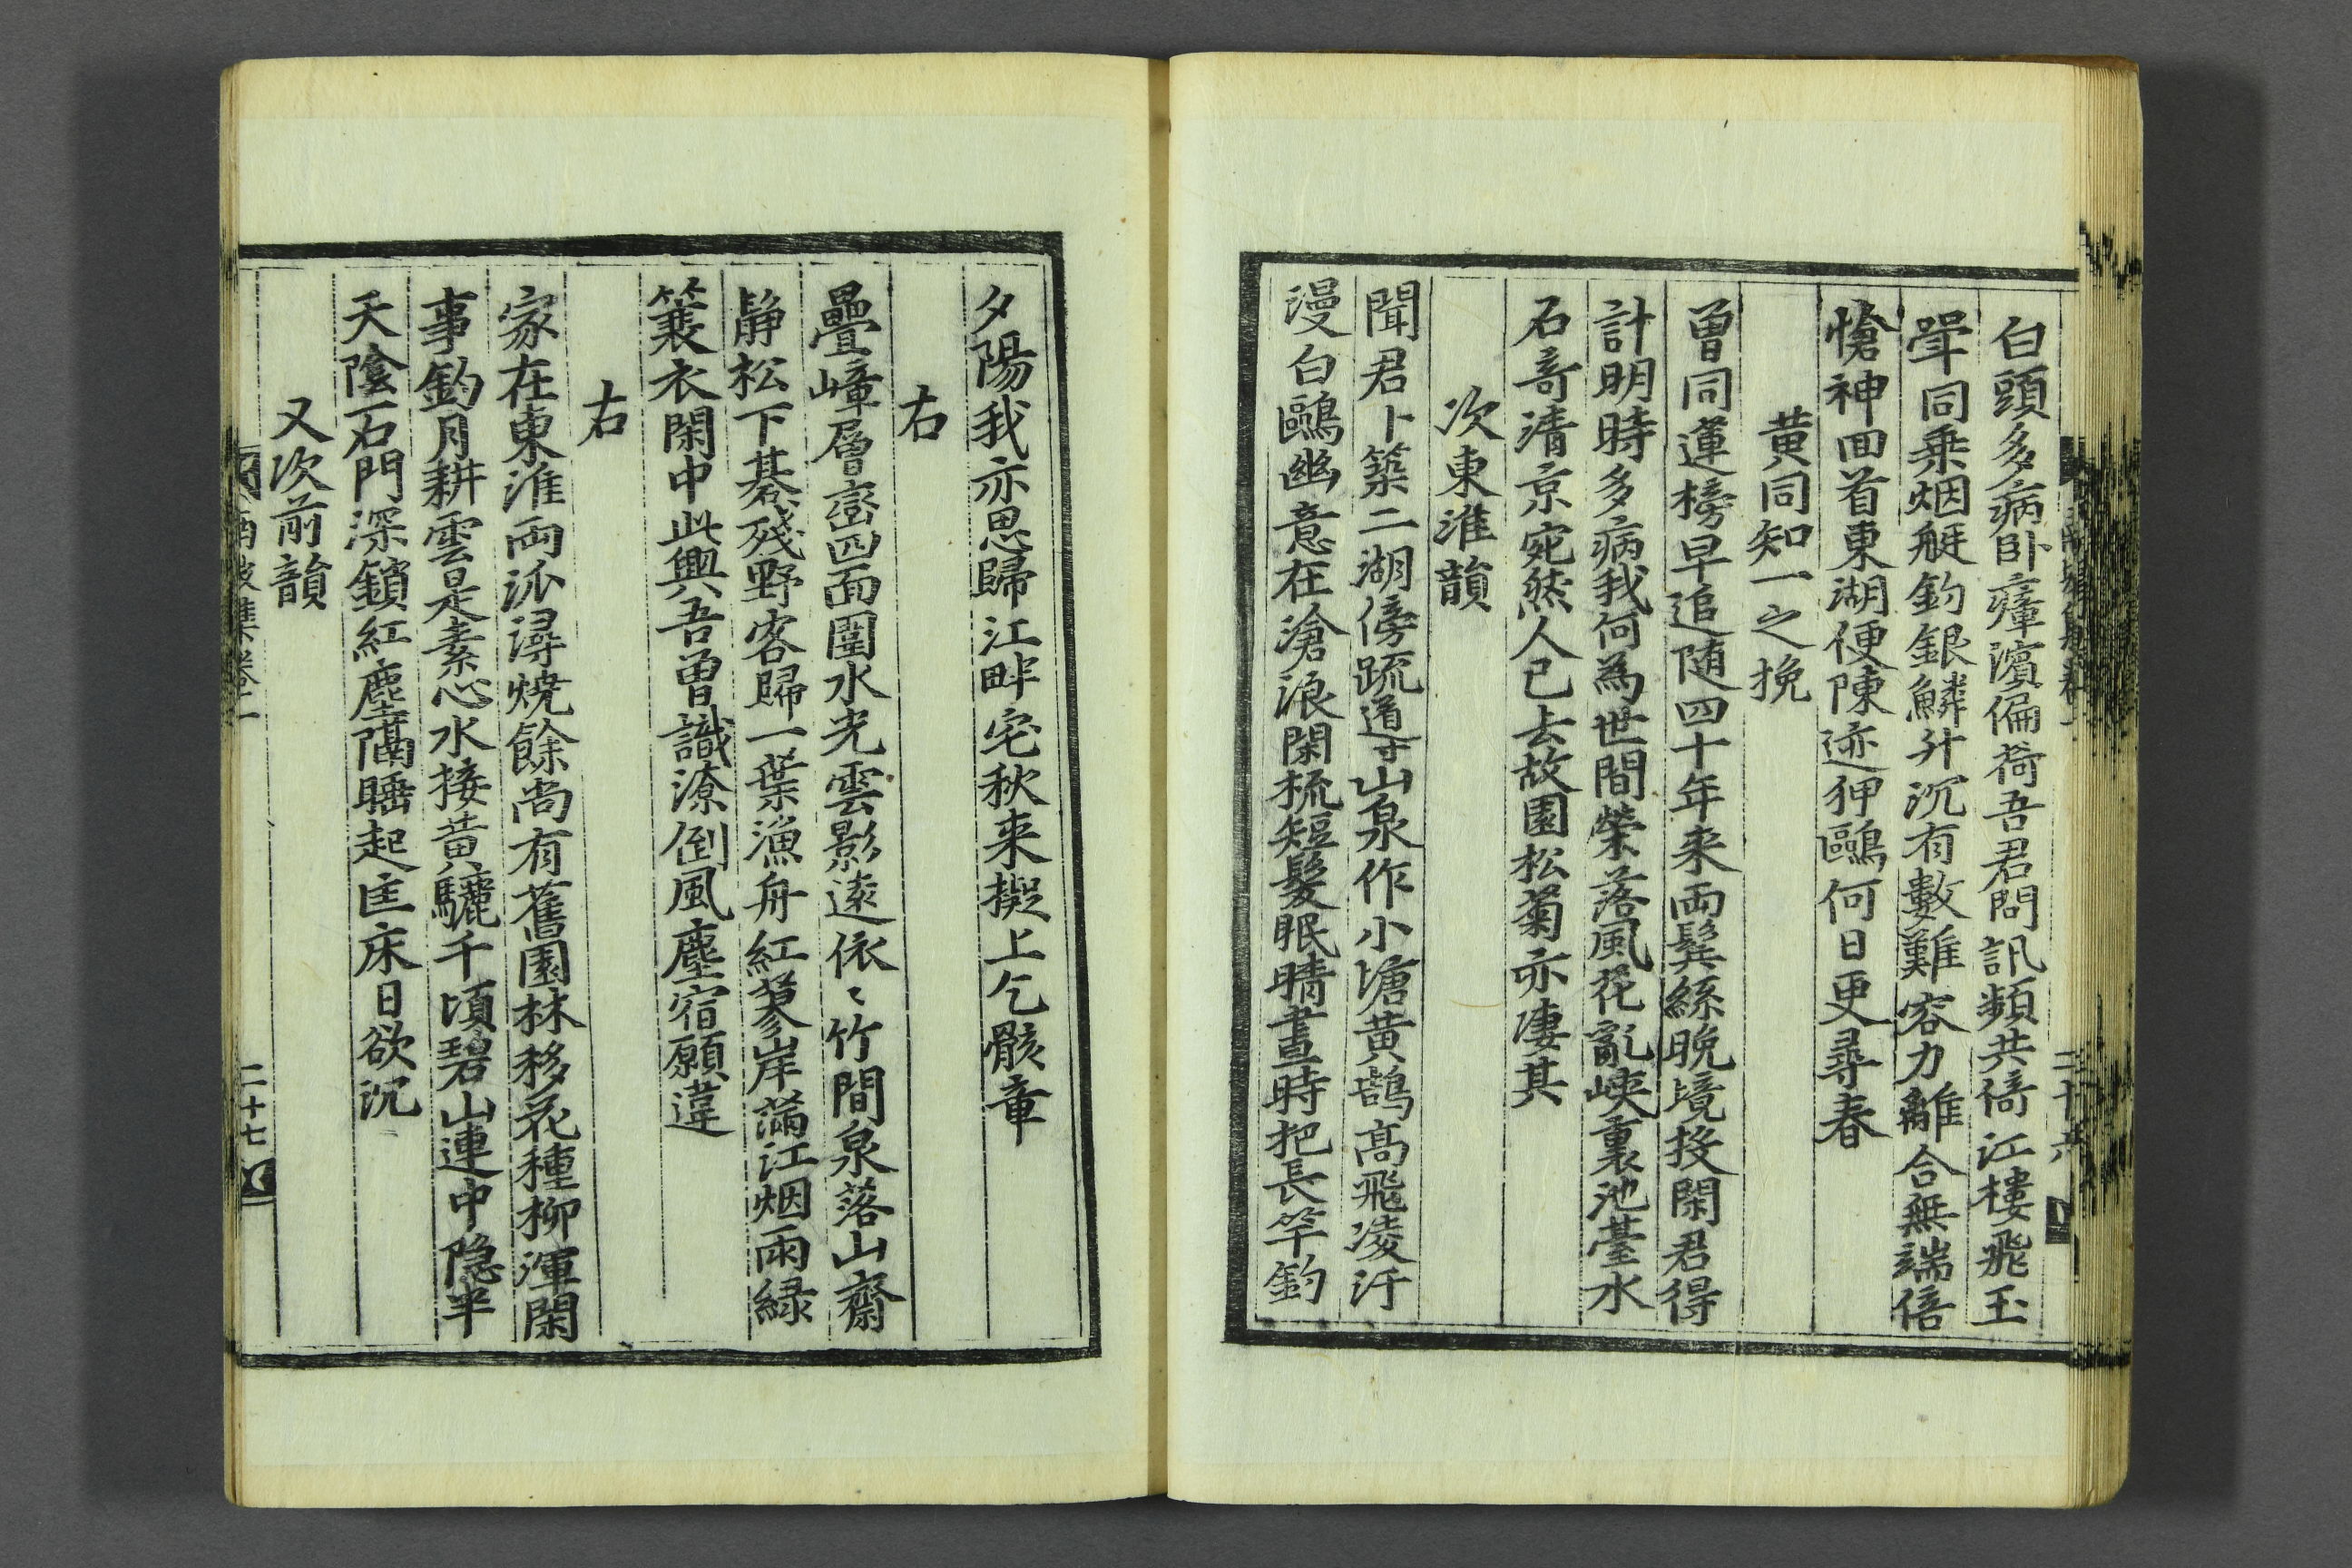 白頭多病卧瘴濱偏荷吾君問訊頻共倚江樓飛玉
斝同乗烟艇釣銀鱗升沉有數難容力離合無端倍
愴神回首東湖便陳迹狎鷗何日更尋春
黄同知一之挽
曾同蓮榜早追随四十年来両鬂絲晩境投閑君得
計明時多病我何為世間榮落風花亂峽裏池臺水
石竒清京宛然人已去故園松菊亦凄其
次東淮韻
聞君卜築二湖傍䟽導山泉作小塘黄鵠髙飛凌汗
漫白鷗幽意在滄浪閑梳短髮眠晴晝時把長竿釣
夕陽我亦思歸江畔宅秋来擬上乞骸章
右
疊嶂層巒四面圍水光雲影遠依〻竹間泉落山齋
靜松下棊殘野客歸一葉漁舟紅蓼岸滿江烟雨緑
簑衣閑中此興吾曾識潦倒風塵宿願違
右
家在東淮両派潯燒餘尚有舊園林移花種柳渾閑
事釣月耕雲是素心水接黄驪千頃碧山連中隐半
天陰石門深鎖紅塵隔睡起匡床日欲沉
又次前韻
二十七